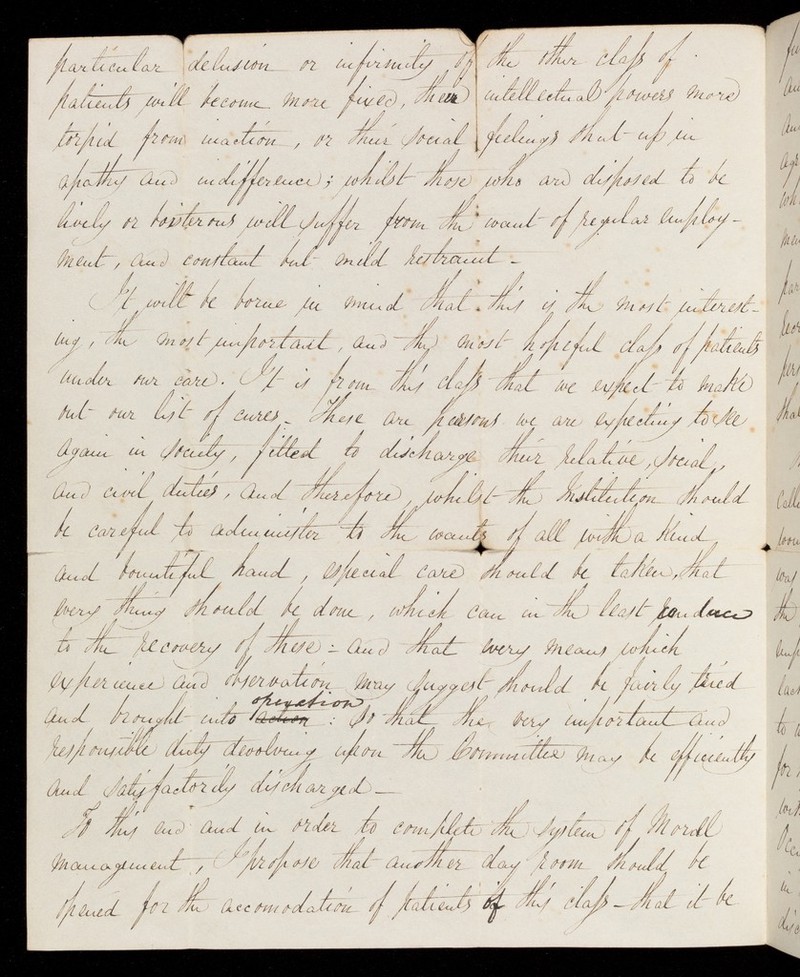 particular delusion or infirmity of the other class of
patients will become more fixed, their intellectual powers more
torpid from inaction, or their social feelings shut up in
apathy and indifference; whilst those who are disposed to be
lively or boisterous will suffer from the want of regular employ-
ment, and constant but mild restraint -
It will be borne in mind that this is the most interest-
ing, the most important, and the most hopeful class of patients
under our care. It is from this class that we expect to make
out our list of cures. These are persons we are expecting to see
again in society, fitted to discharge their relative, social,
and civil duties, and therefore, whilst the Institution should
be careful to administer to the wants of all with a kind
and bountiful hand, especial care should be taken, that
every thing should be done, which can in the least conduce
to the recovery of these - and that every means which
experience and observation may suggest should be fairly tried
operation
and brought into action : so that the very important and
responsible duty devolving upon the Committee may be efficiently
and satisfactorily discharged —
To this end and in order to complete the system of Moral
management, I propose that another day room should be
opened for the accomodation of patients of this class - that it be